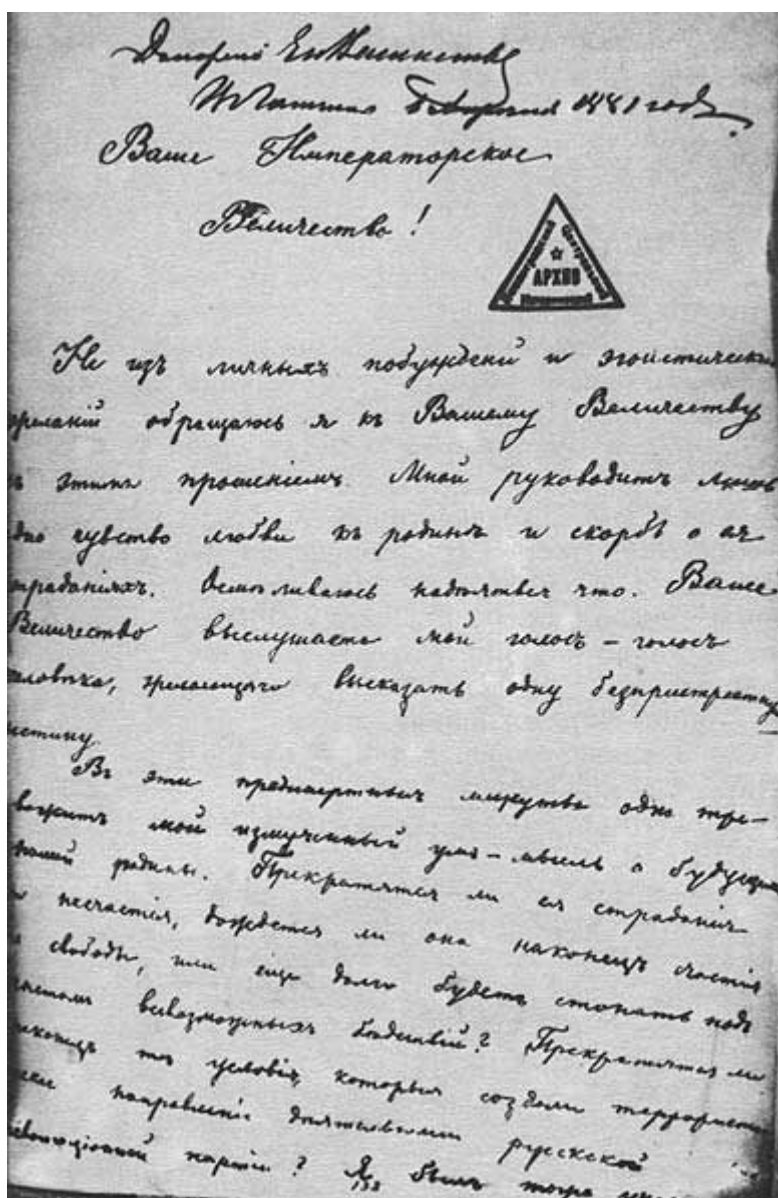 Доложено Его Величеству
въ Гатчинѣ 6 Апрѣля 1881 года.
Ваше Императорское
Величество!
Ленинградский Центральный
АРХИВ
Исторический
Не изъ личныхъ побужденій и эгоистическихъ
желаній обращаюсь я къ Вашему Величеству
съ этимъ прошеніемъ. Мной руководитъ лишь
одно чувство любви къ родинѣ и скорбь о ея
страданіяхъ. Осмѣливаюсь надѣяться что. Ваше
Величество выслушаете мой голосъ – голосъ
человѣка, желающаго высказать одну безпристрастную
истину
Въ эти предсмертныя минуты одно тре-
вожитъ мой измученный умъ – мысль о будущемъ
моей родины. Прекратятся ли ея страданія
и несчастія, дождется ли она наконецъ счастія
и свободы, или еще долго будетъ стонать подъ
всевозможныхъ бѣдствій? Прекратятся ли
наконецъ тѣ условія, которыя создали террористи-
ческое направленіе дѣятельности русской
революціонной партіи? Я былъ тогда